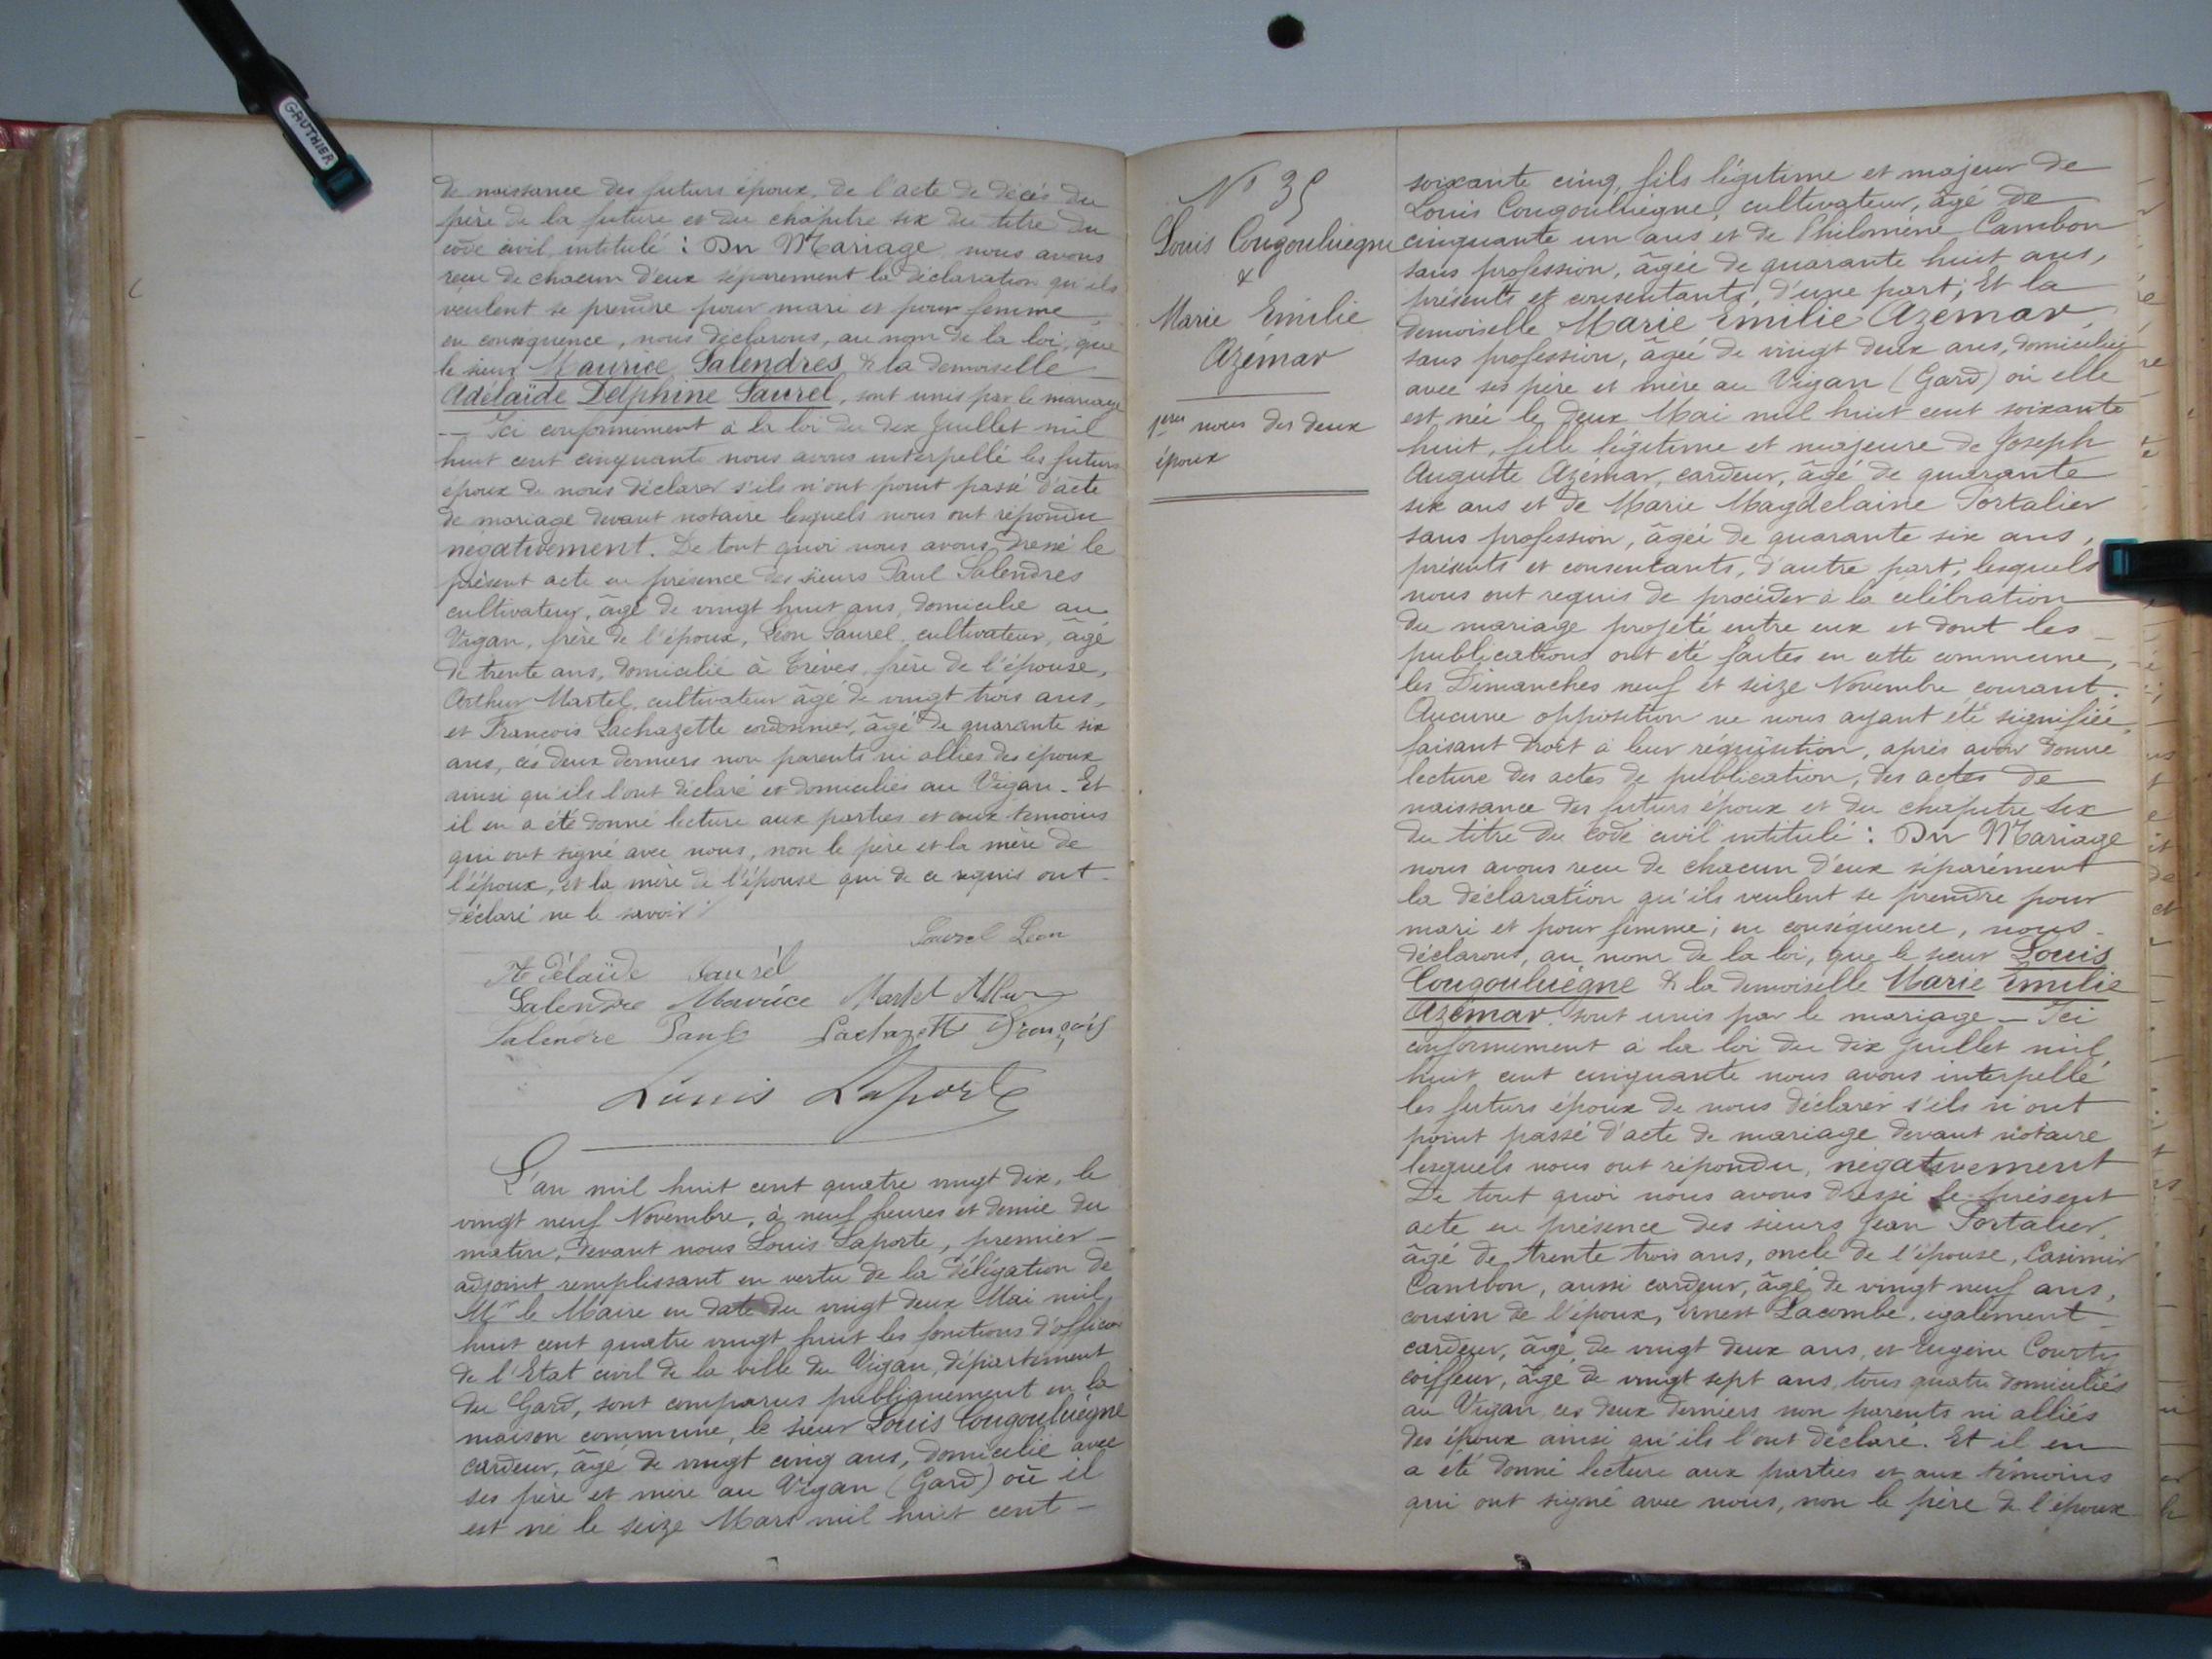 GAUTHIER
de naissance des futurs époux, de l'acte de décès du
père de la future et du chapitre six du titre du
code civil intitulé : Du Mariage, nous avons
reçu de chacun d'eux séparement la déclaration qu'ils
veulent se prendre pour mari et pour femme,
en conséquence, nous déclarons, au nom de la loi, que
le sieur Maurice Salendres & la demoiselle
Adélaïde Delphine Saurel, sont unis par le mariage
— Ici conformément à la loi du dix Juillet mil
huit cent cinquante nous avons interpellé les futurs
époux de nous déclarer s'ils n'ont point passé d'acte
de mariage devant notaire lesquels nous ont répondu
négativement. De tout quoi nous avons dressé le
présent acte en présence des sieurs Paul Salendres
cultivateur, âgé de vingt huit ans, domicilié au
Vigan, frère de l'époux, Léon Saurel, cultivateur, âgé
de trente ans, domicilié à Trèves, frère de l'épouse,
Arthur Martel, cultivateur âgé de vingt trois ans,
et François Lachazette cordonnier, âgé de quarante six
ans, ces deux derniers non parents ni alliés des époux
ainsi qu'ils l'ont déclaré et domiciliés au Vigan. Et
il en a été donné lecture aux parties et aux temoins
qui ont signé avec nous, non le père et la mère de
l'époux, et la mère de l'épouse qui de ce requis ont
déclaré ne le savoir.
Saurel Leon
Adélaïde Saurel
Salendre Maurice Martel Arthur
Salendre Paul Lachazette François
Louis Laporte
L'an mil huit cent quatre vingt dix, le
vingt neuf Novembre, à neuf heures et demie du
matin, devant nous Louis Laporte, premier
adjoint remplissant en vertu de la délégation de
Mr le Maire en date du vingt deux Mai mil
huit cent quatre vingt huit les fonctions d'officier
de l'Etat civil de la ville du Vigan, département
du Gard, sont comparus publiquement en la
maison commune, le sieur Louis Cougouluègne
cardeur, âgé de vingt cinq ans, domicilié avec
ses père et mère au Vigan (Gard) où il
est né le seize Mars mil huit cent
N° 35
Louis Cougouluegne
&
Marie Emilie
Azémar
1ères noces des deux
époux
soixante cinq, fils légitime et majeur de
Louis Cougouluègne, cultivateur, âgé de
cinquante un ans et de Philomène Cambon
sans profession, âgée de quarante huit ans,
présents et consentants, d'une part; Et la
demoiselle Marie Emilie Azemar,
sans profession, âgée de vingt deux ans, domiciliée
avec ses père et mère au Vigan (Gard) où elle
est née le deux Mai mil huit cent soixante
huit, fille légitime et majeure de Joseph
Auguste Azemar, cardeur, âgé de quarante
six ans et de Marie Magdelaine Portalier
sans profession, âgée de quarante six ans,
présents et consentants, d'autre part; lesquels
nous ont requis de procéder à la célébration
du mariage projeté entre eux et dont les
publications ont été faites en cette commune,
les Dimanches neuf et seize Novembre courant.
Aucune opposition ne nous ayant été signifiée,
faisant droit à leur réquisition, après avoir donné
lecture des actes de publication, des actes de
naissance des futurs époux et du chapitre six
du titre du code civil intitulé : Du Mariage
nous avons reçu de chacun d'eux séparément
la déclaration qu'ils veulent se prendre pour
mari et pour femme; en conséquence, nous
déclarons, au nom de la loi, que le sieur Louis
Cougouluègne & la demoiselle Marie Emilie
Azémar sont unis par le mariage — Ici
conformément à la loi du dix Juillet mil
huit cent cinquante nous avons interpellé
les futurs époux de nous déclarer s'ils n'ont
point passé d'acte de mariage devant notaire
lesquels nous ont répondu, négativement
De tout quoi nous avons dressé le présent
acte en présence des sieurs Jean Portalier,
âgé de trente trois ans, oncle de l'épouse, Casimir
Cambon, aussi cardeur, âgé de vingt neuf ans,
cousin de l'époux, Ernest Lacombe, egalement
cardeur, âgé de vingt deux ans, et Eugène Courtès
coiffeur, âgé de vingt sept ans, tous quatre domiciliés
au Vigan, ces deux derniers non parents ni alliés
des époux ainsi qu'ils l'ont déclaré. Et il en
a été donné lecture aux parties et aux témoins
qui ont signé avec nous, non le père de l'époux